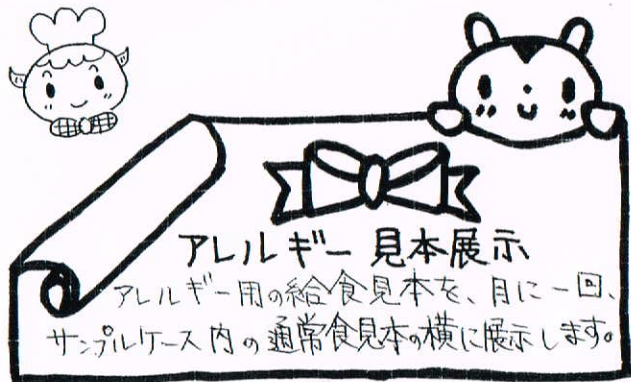 アレルギー 見本展示
アレルギー用の給食見本を、月に一回、
サンプルケース内の通常食見本の横に展示します。